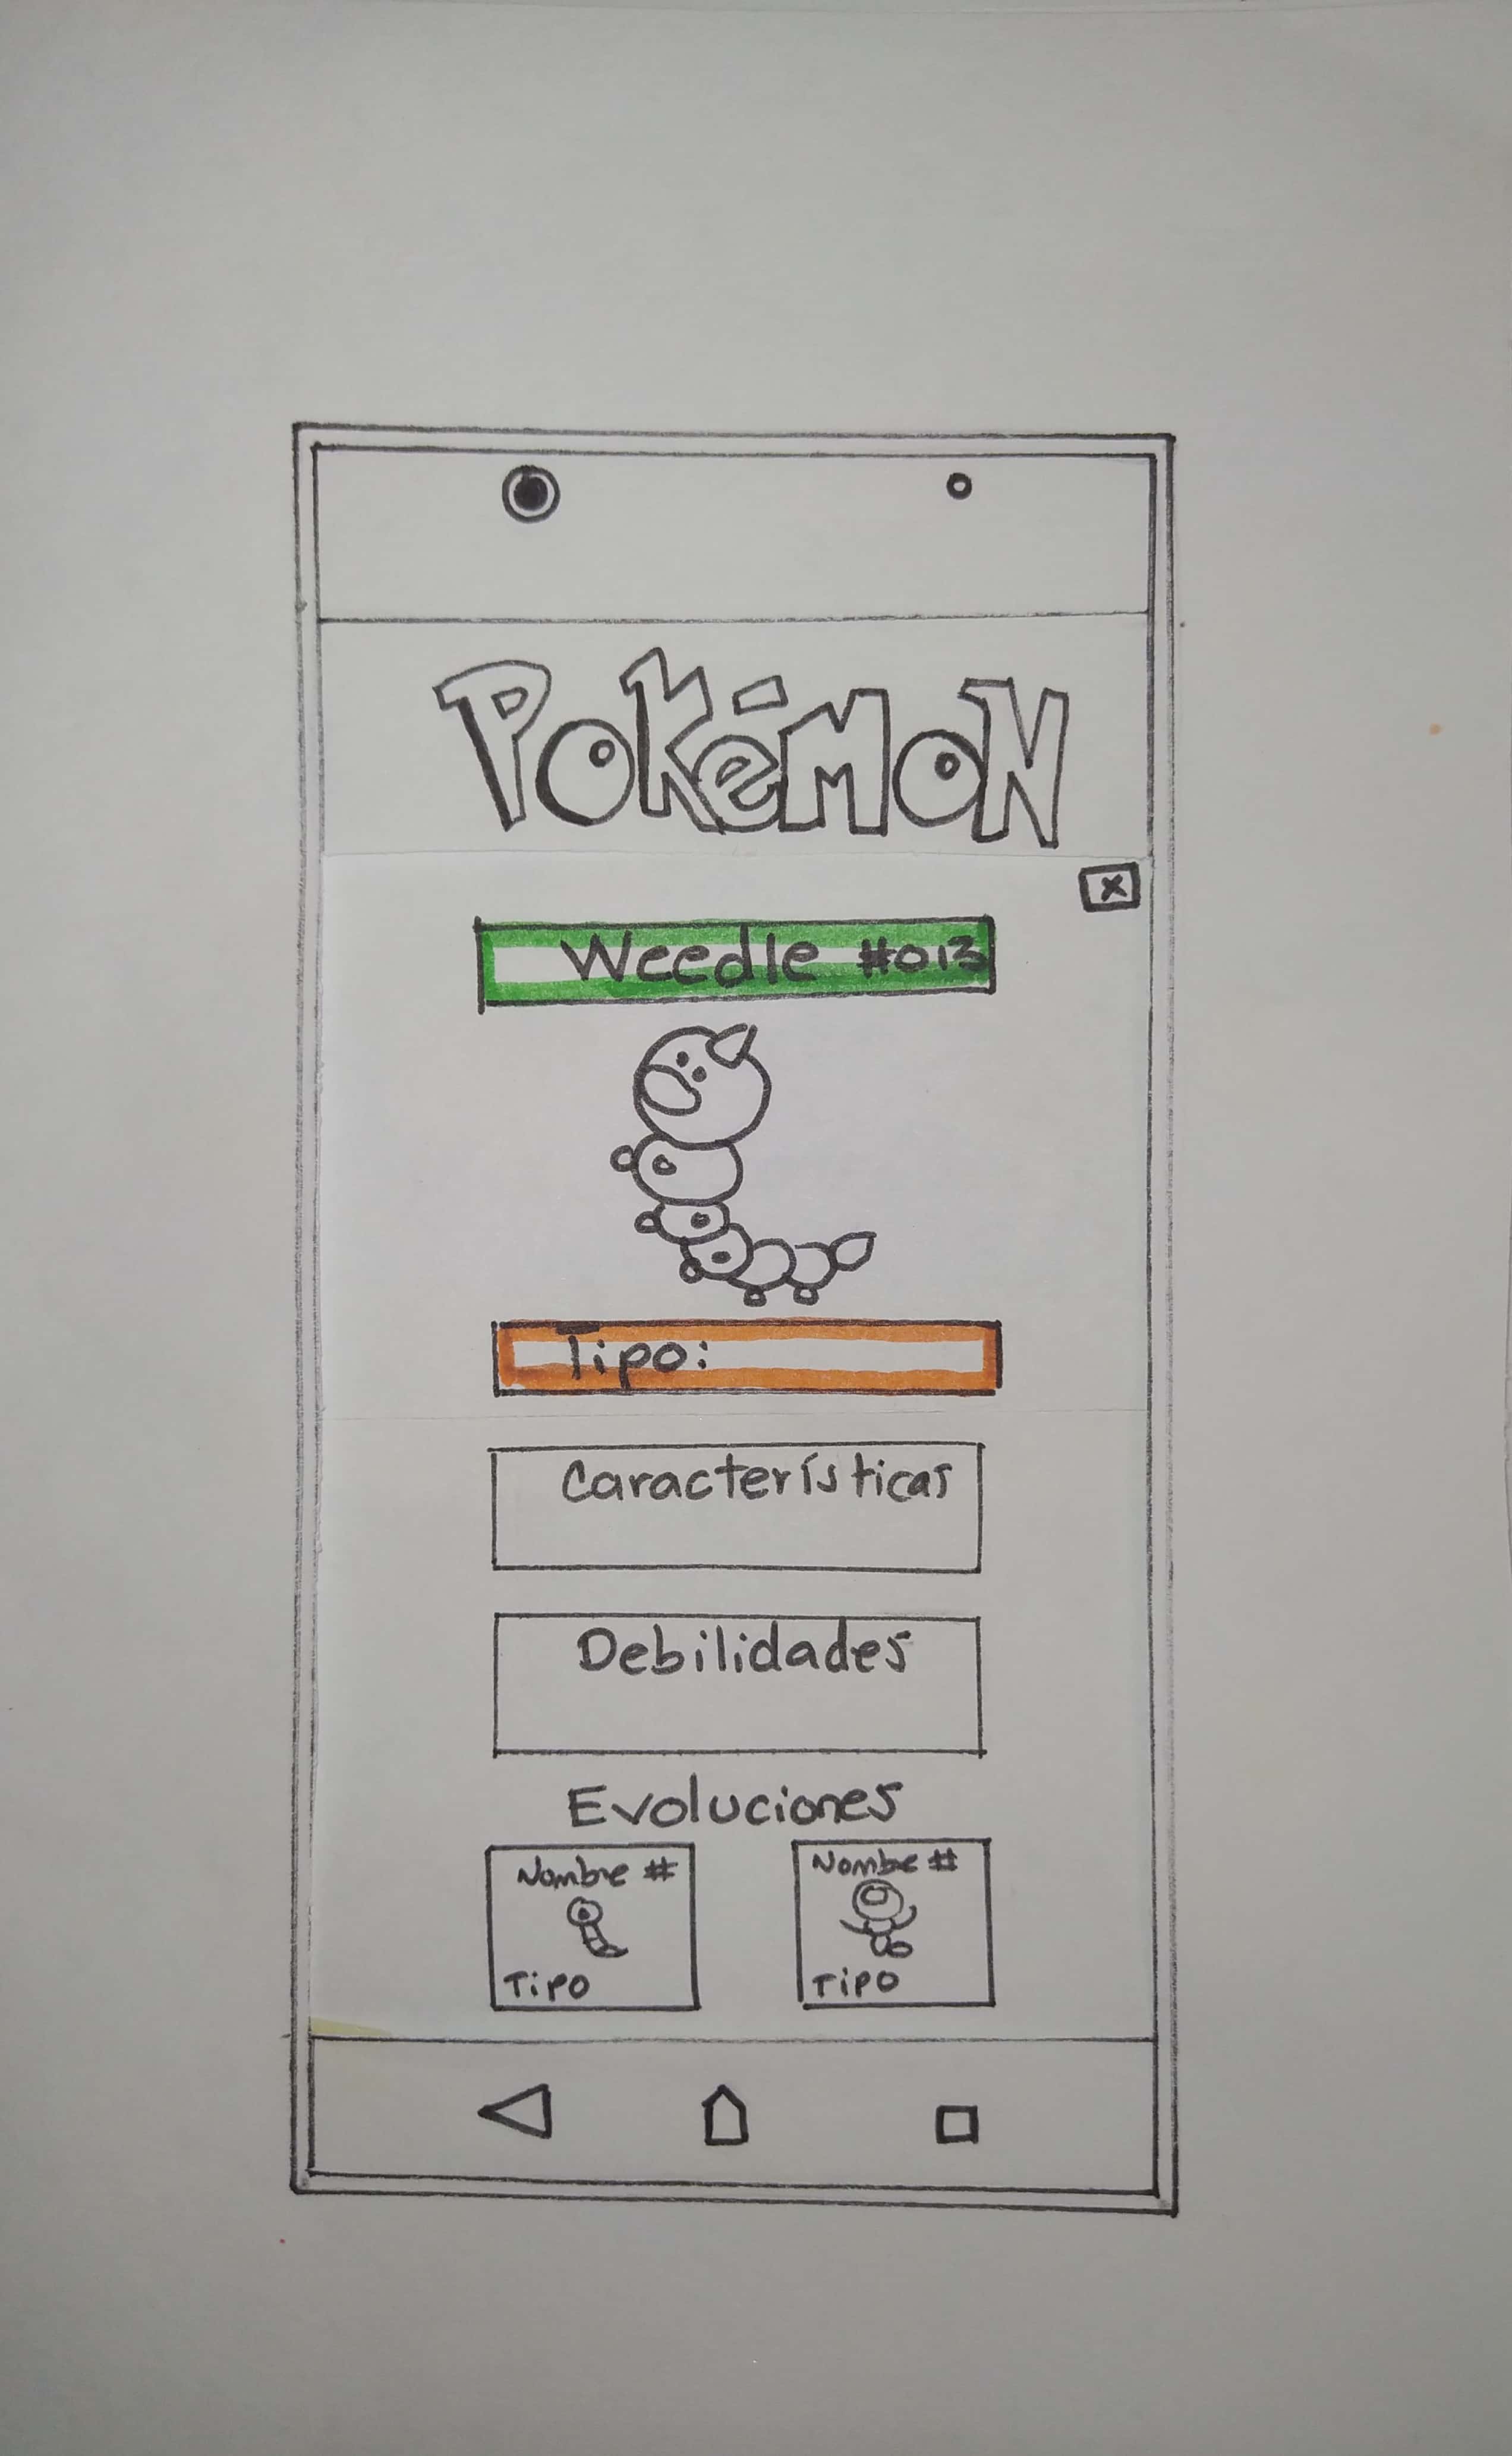 Pokémon
x
Weedle #013
Tipo:
Características
Debilidades
Evoluciones
Nombre # Nombe #
Tipo Tipo